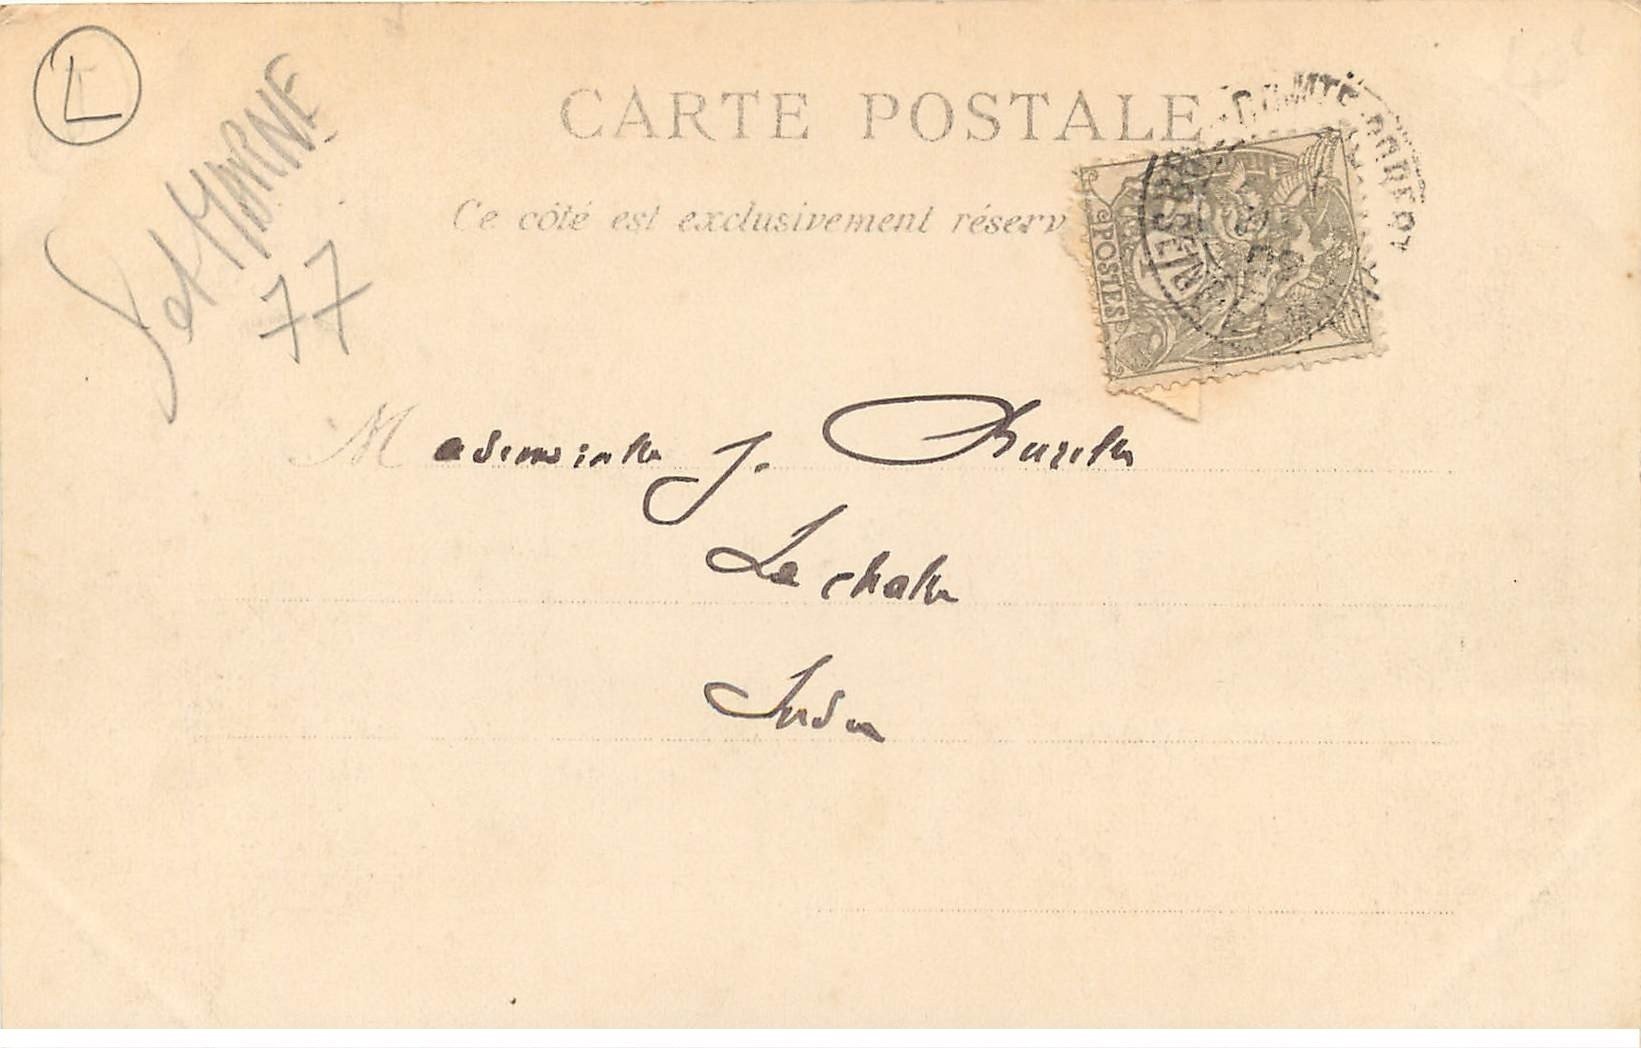 L
S et MARNE
77
CARTE POSTALE
Ce côté est exclusivement réserv
POSTES
Mademoiselle J.
La chatre
Indre